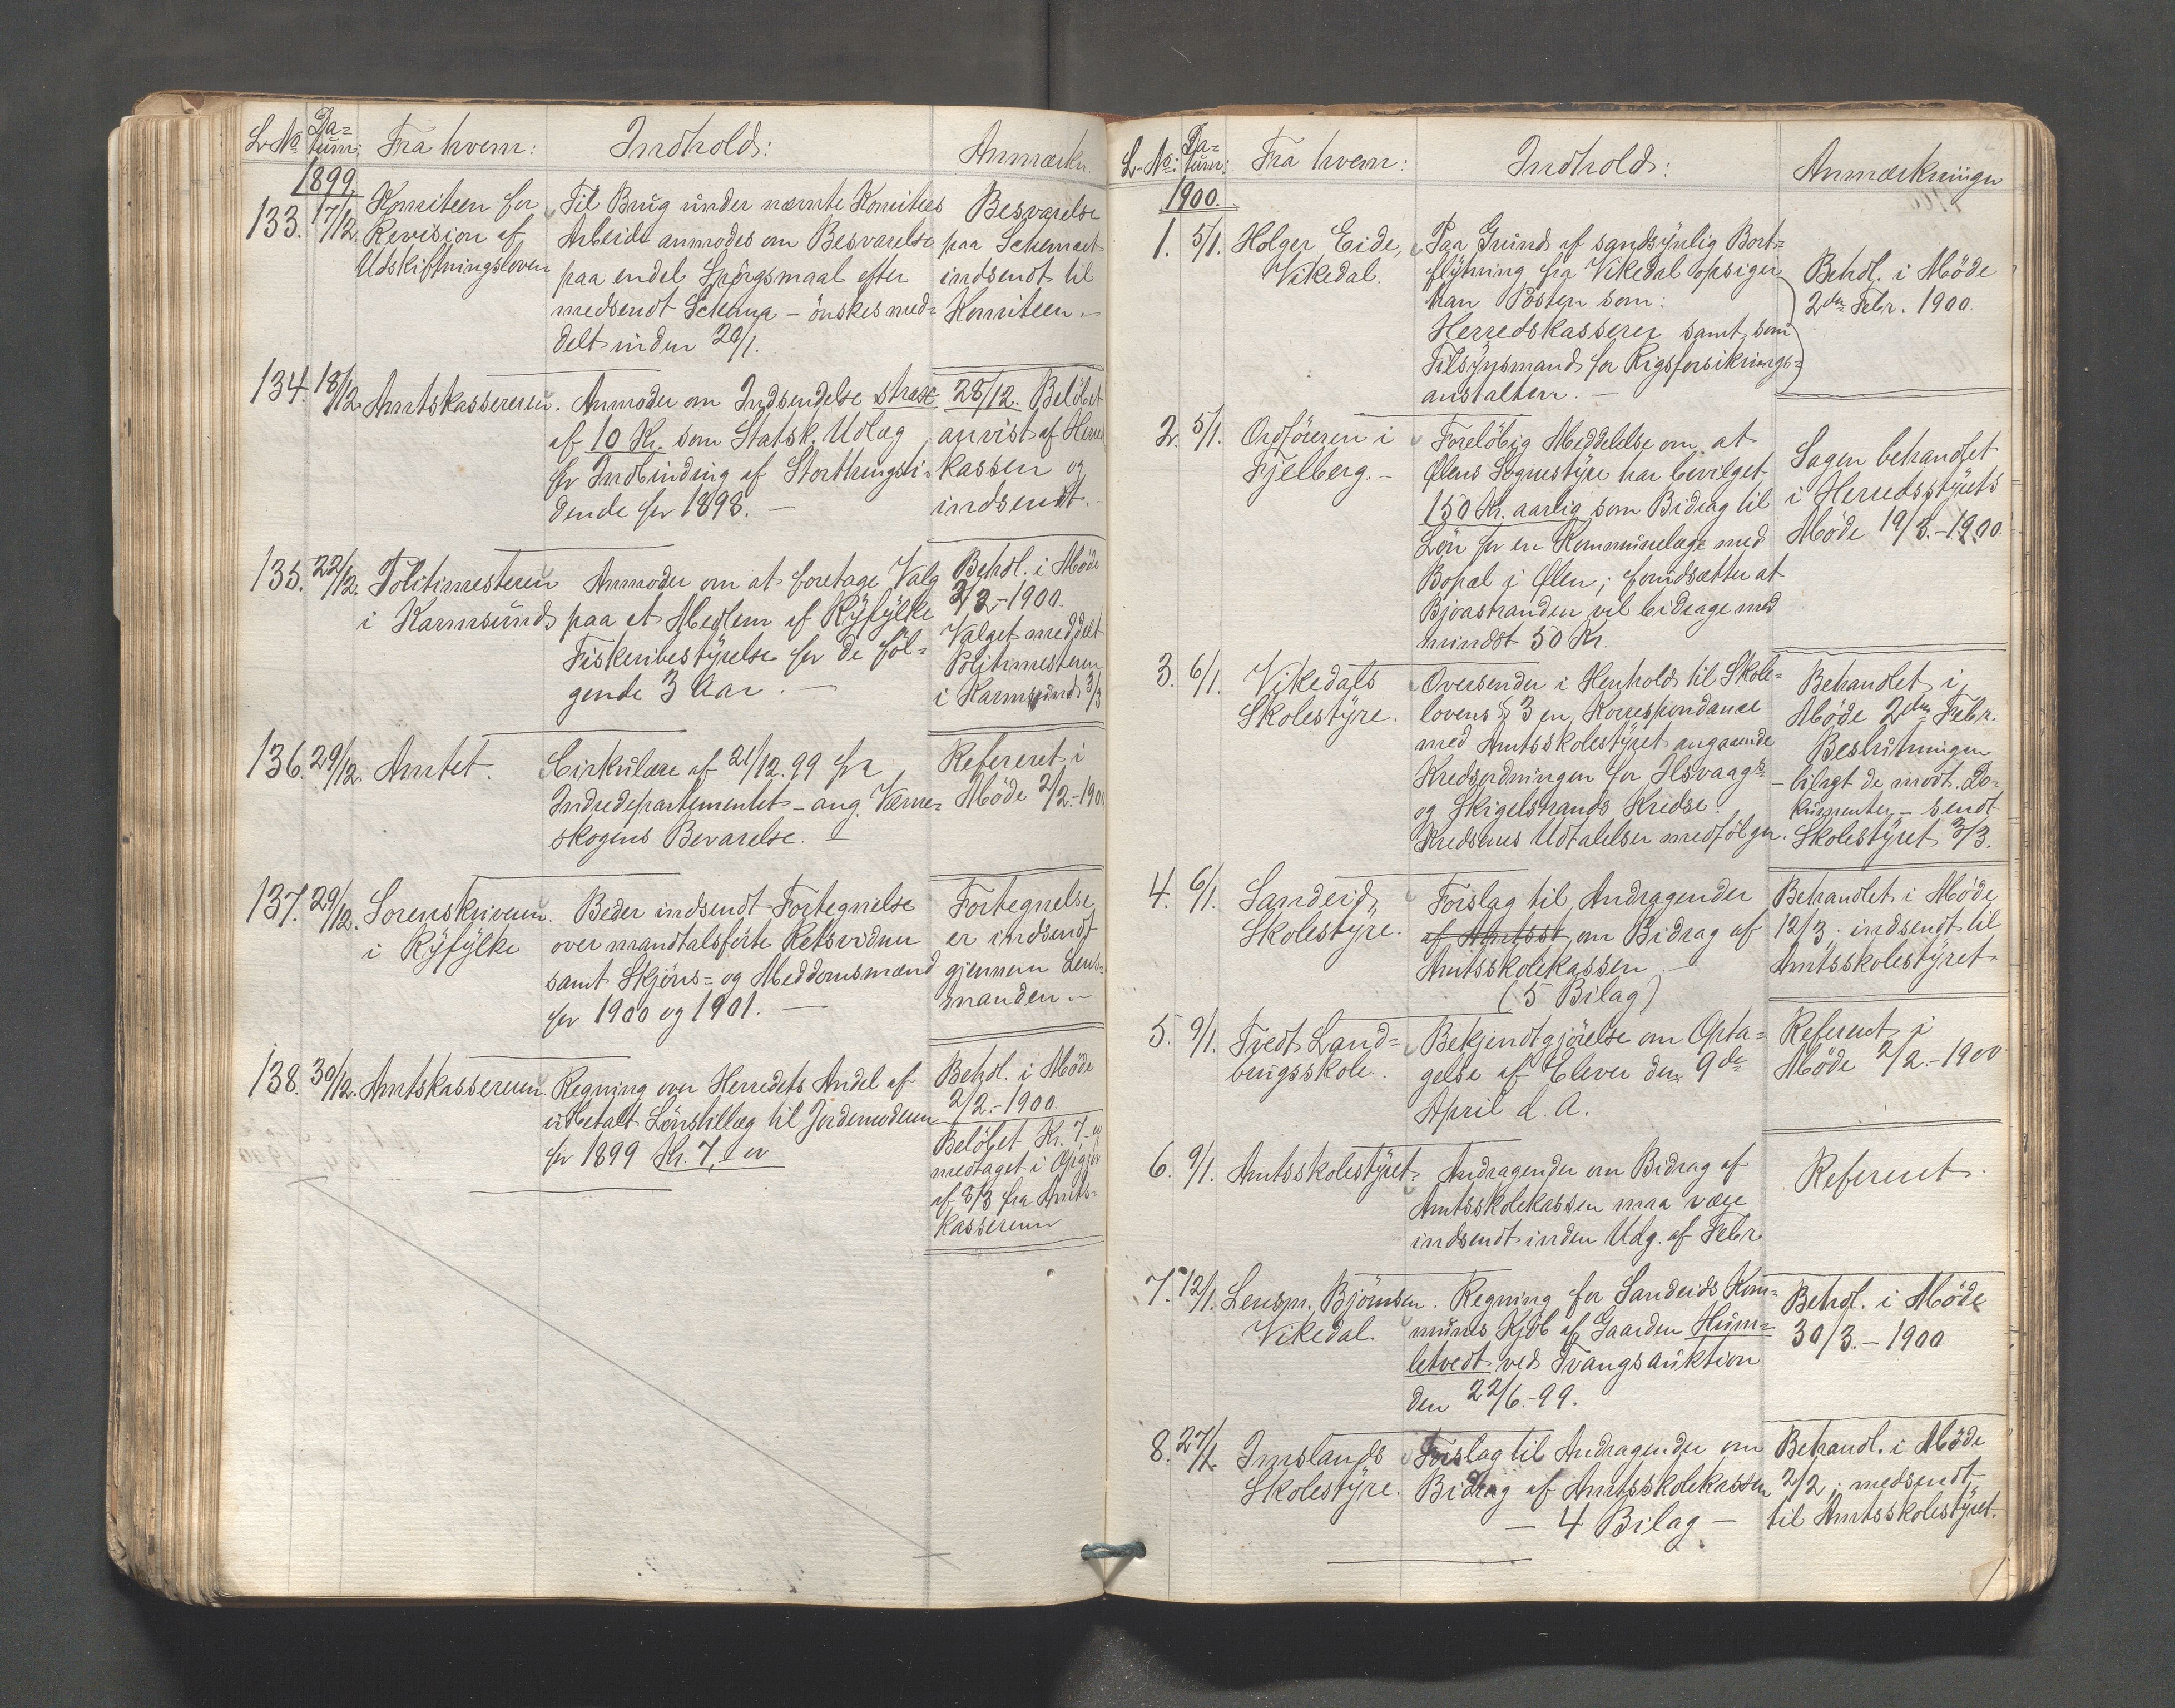 L-No Da=tum: Fra hvem: Indhold: Anmærkn.
1899.
133. 17/12. Komiteen for
Revision af
Udskiftningsloven
Til Brug under nævnte Komitees
Arbeide anmodes om Besvarelse
paa endel Spörgsmaal efter
medsendt Schema – önskes med=
delt inden 20/1.
Besvarelse
paa Schemaet
indsendt til
Komiteen. –
134. 18/12. Amtskassereren.
Anmoder om Indsendelse strax
af 10 Kr. som Statsk. Udlæg
for Indbinding af Storthingsti=
dende for 1898. –
28/12. Belöbet
anvist af Herreds
kassen og
indsendt. –
135. 22/12. Politimesteren
i Karmsund
Anmoder om at foretage Valg
paa et Medlem af Ryfylke
Fiskeribestyrelse for de föl=
gende 3 Aar. –
Behdl. i Möde
2/2.–1900.
Valget meddelt
Politimesteren
i Karmsund 3/3
136. 29/12. Amtet.
Cirkulære af 21/12.99 fra
Indredepartementet – ang. Værne=
skogens Bevarelse. –
Refereret i
Möde 2/2.–1900
137. 29/12. Sorenskriveren
i Ryfylke
Beder indsendt Fortegnelse
over mandtalsförte Retsvidner
samt Skjöns= og Meddomsmænd
for 1900 og 1901. –
Fortegnelse
er indsendt
gjennem Lens=
manden. –
138. 30/12. Amtskassereren.
Regning over Herredets Andel af
udbetalt Lönstillæg til Jordemoderen
for 1899 Kr. 7,–
Behdl. i Möde
2/2.–1900.
Belöbet Kr. 7,–
medtaget i Opgjör
af 8/3 fra Amts=
kassereren
L-No: Da=tum: Fra hvem: Indhold: Anmærkninger
1900.
1. 5/1. Holger Eide,
Vikedal.
Paa Grund af sandsynlig Bort=
flytning fra Vikedal opsiger
han Posten som:
Herredskasserer samt som
Tilsynsmand for Rigsforsikrings=
anstalten. –
Behdl. i Möde
2den Febr. 1900.
2. 5/1. Ordföreren i
Fjelberg. –
Forelöbig Meddelelse om at
Ølens Sognestyre har bevilget
150 Kr. aarlig som Bidrag til
Lön for en Kommunelæge med
Bopæl i Ølen; forudsætter at
Bjoastranden vil bidrage med
mindst 50 Kr.
Sagen behandlet
i Herredsstyrets
Möde 19/3.–1900.
3. 6/1. Vikedals
Skolestyre.
Oversender i Henhold til Skole=
lovens § 3 en Korrespondance
med Amtsskolestyret angaaende
Kredsordningen for Ilsvaags
og Skigelstrands Kredse.
Kredsenes Udtalelser medfölger.
Behandlet i
Möde 2den Febr.
Beslutningen
– bilagt de modt. Do=
kumenter – sendt
Skolestyret 3/3.
4. 6/1. Sandeid
Skolestyre.
Forslag til Andragender
af Amtssk om Bidrag af
Amtsskolekassen. –
(5 Bilag)
Behandlet i Möde
12/3; indsendt til
Amtsskolestyret
5. 9/1. Tvedt Land=
brugsskole.
Bekjendtgjörelse om Opta=
gelse af Elever den 9de
April d. A.
Refereret i
Möde 2/2.–1900
6. 9/1. Amtsskolestyret.
Andragender om Bidrag af
Amtsskolekassen maa være
indsendt inden Udg. af Febr.
Refereret.
7. 12/1. Lensm. Björnsen.
Vikedal.
Regning for Sandeids Kom=
munes Kjöb af Gaarden Hum=
letvedt ved Tvangsauktion
den 22/6.–99.
Behdl. i Möde
30/3.–1900
8. 27/1. Imslands
Skolestyre.
Forslag til Andragender om
Bidrag af Amtsskolekassen
– 4 Bilag –
Behandl. i Möde
2/2; medsendt
til Amtsskolestyret.